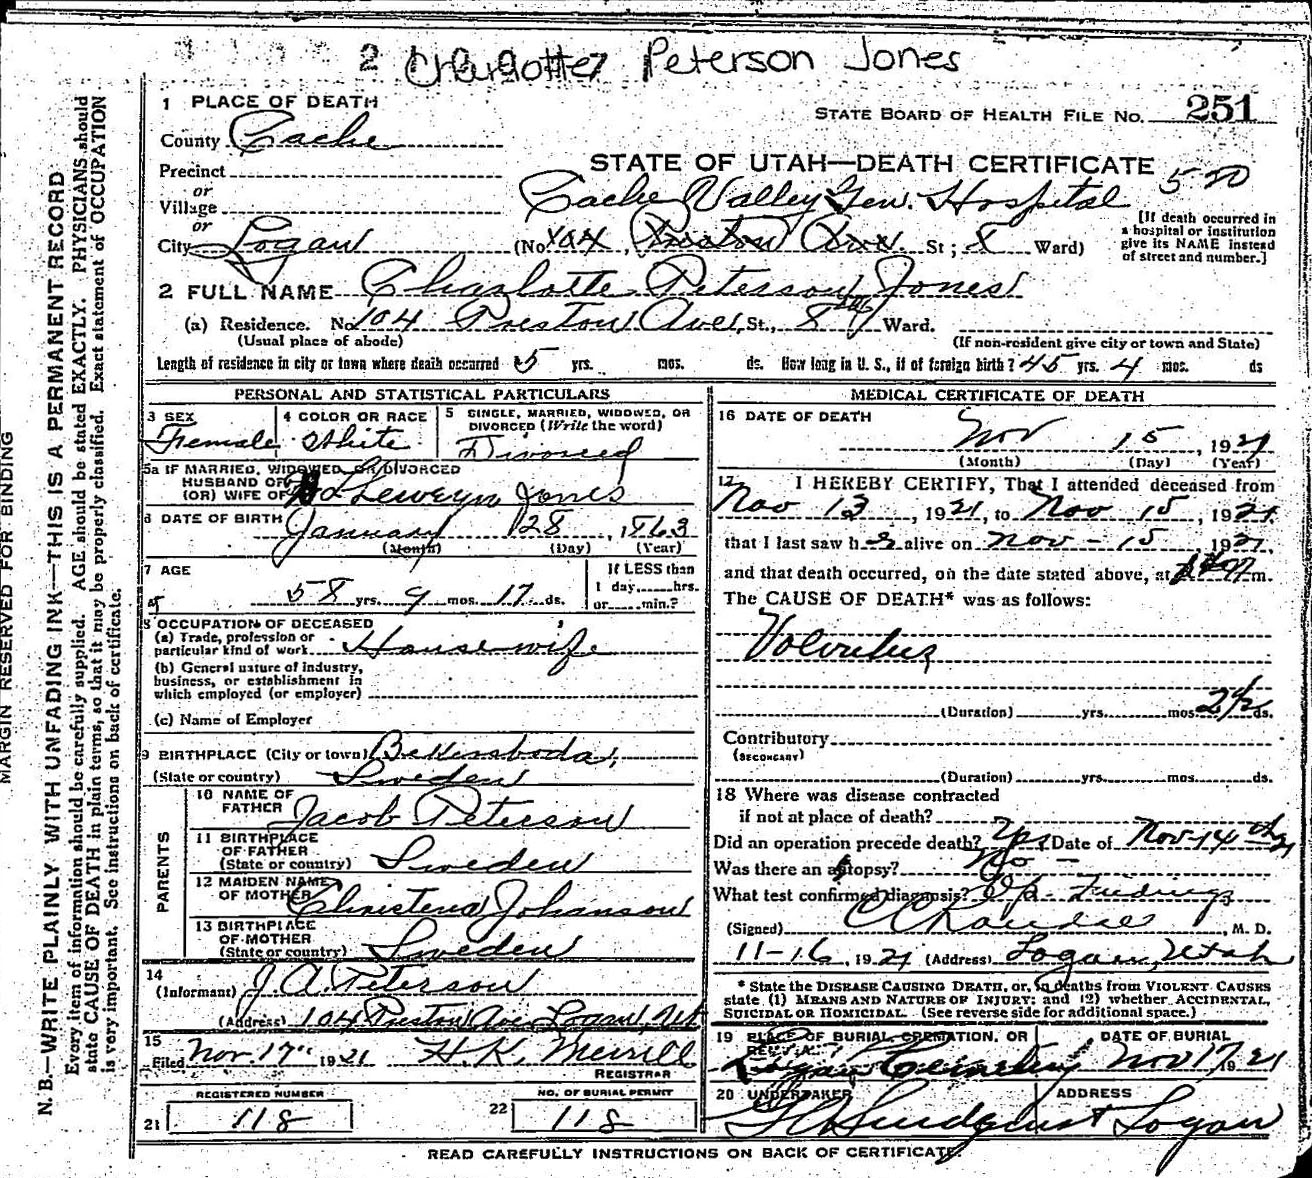 2 Charlotte Peterson Jones
1 PLACE OF DEATH
STATE BOARD OF HEALTH FILE No. 251
County Cache
STATE OF UTAH—DEATH CERTIFICATE
Precinct
or
Village
Cache Valley Gen. Hospital 520
or
City Logan (No. 104, Preston Ave. St; 8 Ward)
[If death occurred in
a hospital or institution
give its NAME instead
of street and number.]
2 FULL NAME Charlotte Peterson Jones
(a) Residence. No. 104 Preston Ave, St., 8th Ward.
(Usual place of abode)
(If non-resident give city or town and State)
Length of residence in city or town where death occurred 5 yrs. mos. ds. How long in U. S., if of foreign birth? 45 yrs. 4 mos. ds
PERSONAL AND STATISTICAL PARTICULARS
3 SEX
Female
4 COLOR OR RACE
White
5 SINGLE, MARRIED, WIDOWED, OR
DIVORCED (Write the word)
Divorced
5a IF MARRIED, WIDOWED, OR DIVORCED
HUSBAND OF
(OR) WIFE OF Llewelyn Jones
6 DATE OF BIRTH January 28, 1863
(Month) (Day) (Year)
7 AGE
58 yrs. 9 mos. 17 ds.
If LESS than
1 day,......hrs.
or......min.?
8 OCCUPATION OF DECEASED
(a) Trade, profession or
particular kind of work House wife
(b) General nature of industry,
business, or establishment in
which employed (or employer)
(c) Name of Employer
9 BIRTHPLACE (City or town)
(State or country) Sweden
PARENTS
10 NAME OF
FATHER Jacob Peterson
11 BIRTHPLACE
OF FATHER
(State or country) Sweden
12 MAIDEN NAME
OF MOTHER Christena Johanson
13 BIRTHPLACE
OF MOTHER
(State or country) Sweden
14
(Informant) J. A. Peterson
(Address) 104 Preston Ave Logan, Ut
15
Filed Nov. 17th 1921 H. K. Merrill
REGISTRAR
REGISTERED NUMBER
21 118
NO. OF BURIAL PERMIT
22 118
MEDICAL CERTIFICATE OF DEATH
16 DATE OF DEATH
Nov 15, 1921
(Month) (Day) (Year)
17 I HEREBY CERTIFY, That I attended deceased from
Nov 13, 1921, to Nov 15, 1921
that I last saw her alive on Nov - 15, 1921,
and that death occurred, on the date stated above, at m.
The CAUSE OF DEATH* was as follows:
Volvulus
(Duration) yrs. mos. 2½ ds.
Contributory
(SECONDARY)
(Duration) yrs. mos. ds.
18 Where was disease contracted
if not at place of death?
Did an operation precede death? Yes Date of Nov-14th 21
Was there an autopsy? No -
What test confirmed diagnosis? Op. Findings
(Signed) , M. D.
11-16, 1921 (Address) Logan, Utah
* State the DISEASE CAUSING DEATH, or, in deaths from VIOLENT CAUSES
state (1) MEANS AND NATURE OF INJURY; and (2) whether ACCIDENTAL,
SUICIDAL OR HOMICIDAL. (See reverse side for additional space.)
19 PLACE OF BURIAL, CREMATION, OR
REMOVAL
Logan Cemetery
DATE OF BURIAL
Nov 17 1921
20 UNDERTAKER
Lindquist
ADDRESS
Logan
READ CAREFULLY INSTRUCTIONS ON BACK OF CERTIFICATE
MARGIN RESERVED FOR BINDING
N. B.—WRITE PLAINLY WITH UNFADING INK—THIS IS A PERMANENT RECORD
Every item of information should be carefully supplied. AGE should be stated EXACTLY. PHYSICIANS should
state CAUSE OF DEATH in plain terms, so that it may be properly classified. Exact statement of OCCUPATION
is very important. See instructions on back of certificate.